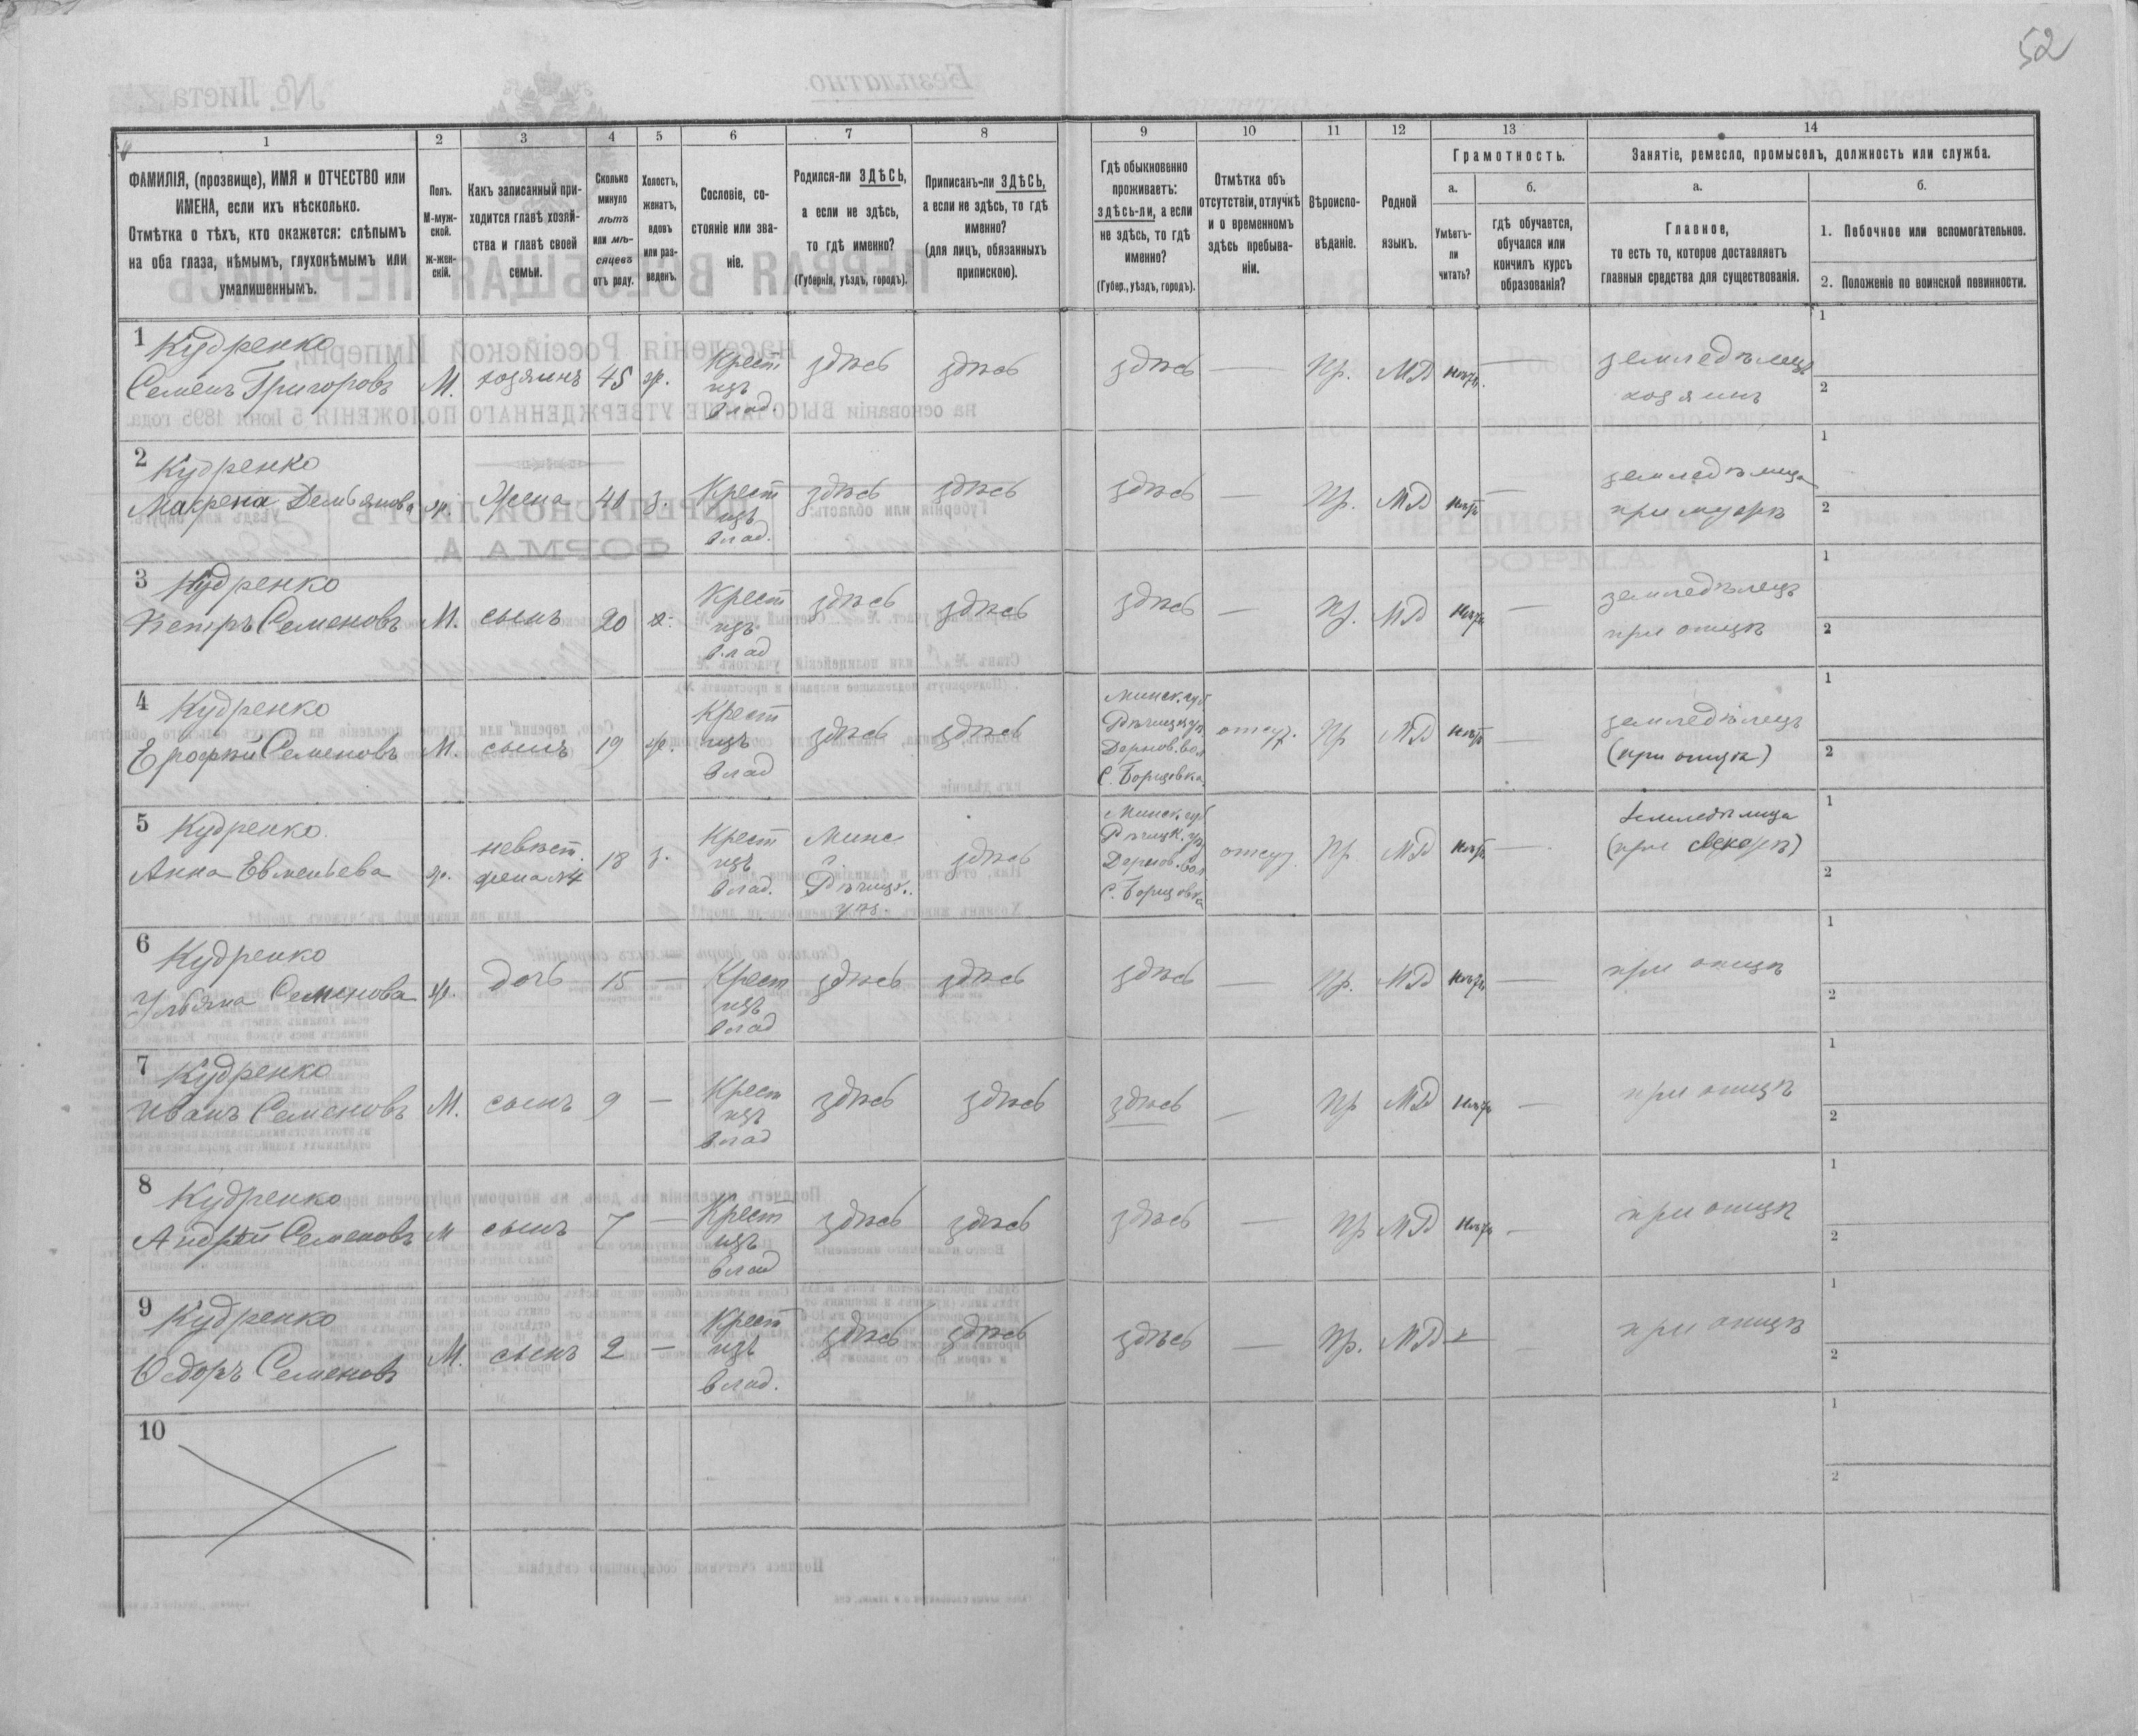 52
1 2 3 4 5 6 7 8 9 10 11 12 13 14
ФАМИЛІЯ, (прозвище), ИМЯ и ОТЧЕСТВО или
ИМЕНА, если ихъ нѣсколько.
Отмѣтка о тѣхъ, кто окажется: слѣпымъ
на оба глаза, нѣмымъ, глухонѣмымъ или
умалишеннымъ.
Полъ.
М-муж-
ской.
Ж-жен-
скій.
Какъ записанный при-
ходится главѣ хозяй-
ства и главѣ своей
семьи.
Сколько
минуло
лѣтъ
или мѣ-
сяцевъ
отъ роду.
Холостъ,
женатъ,
вдовъ
или раз-
веденъ.
Сословіе, со-
стояніе или зва-
ніе.
Родился-ли ЗДѢСЬ,
а если не здѣсь,
то гдѣ именно?
(Губернія, уѣздъ, городъ).
Приписанъ-ли ЗДѢСЬ,
а если не здѣсь, то гдѣ
именно?
(для лицъ, обязанныхъ
припискою).
Гдѣ обыкновенно
проживаетъ:
здѣсь-ли, а если
не здѣсь, то гдѣ
именно?
(Губер., уѣздъ, городъ).
Отмѣтка объ
отсутствіи, отлучкѣ
и о временномъ
здѣсь пребыва-
ніи.
Вѣроиспо-
вѣданіе.
Родной
языкъ.
Грамотность.
а.
Умѣетъ-
ли
читать?
б.
гдѣ обучается,
обучался или
кончилъ курсъ
образованія?
Занятіе, ремесло, промыселъ, должность или служба.
а.
Главное,
то есть то, которое доставляетъ
главныя средства для существованія.
б.
1. Побочное или вспомогательное.
2. Положеніе по воинской повинности.
1 Кудренко
Семенъ Григоровъ
М.
хозяинъ
45
ж.
Крест
изъ
влад.
здѣсь
здѣсь
здѣсь
—
Пр.
МР
нѣтъ
—
земледѣлецъ
хозяинъ
1
2
2 Кудренко
Макрена Демьянова
ж.
Жена
40
з.
Крест
изъ
влад.
здѣсь
здѣсь
здѣсь
—
Пр.
МР
нѣтъ
—
земледѣлица
при мужѣ
1
2
3 Кудренко
Петръ Семеновъ
М.
сынъ
20
х.
Крест
изъ
влад
здѣсь
здѣсь
здѣсь
—
Пр.
МР
нѣтъ
—
земледѣлецъ
при отцѣ
1
2
4 Кудренко
Ерофей Семеновъ
М.
сынъ
19
ж.
Крест
изъ
влад
здѣсь
здѣсь
Минск. губ
Рѣчицк. уѣз
Дернов. вол
С. Борщовка
отсут.
Пр
МР
нѣтъ
—
земледѣлецъ
(при отцѣ)
1
2
5 Кудренко.
Анна Евменьева
ж.
невѣст.
жена №4
18
з.
Крест
изъ
влад.
Минс
г.
Рѣчицк.
уѣз.
здѣсь
Минск. губ
Рѣчицк. уѣз
Дернов. вол
С. Борщовка
отсут.
Пр
МР
нѣтъ
—
земледѣлица
(при свекорѣ)
1
2
6 Кудренко
Ульяна Семенова
ж.
дочь
15
—
Крест
изъ
влад
здѣсь
здѣсь
здѣсь
—
Пр.
МР
нѣтъ
—
при отцѣ
1
2
7 Кудренко
Иванъ Семеновъ
М.
сынъ
9
—
Крест
изъ
влад
здѣсь
здѣсь
здѣсь
—
Пр
МР
нѣтъ
—
при отцѣ
1
2
8 Кудренко
Андрей Семеновъ
М
сынъ
7
—
Крест
изъ
влад
здѣсь
здѣсь
здѣсь
—
Пр
МР
нѣтъ
—
при отцѣ
1
2
9 Кудренко
Ѳедоръ Семеновъ
М.
сынъ
2
—
Крест
изъ
влад.
здѣсь
здѣсь
здѣсь
—
Пр.
МР
—
при отцѣ
1
2
10
1
2